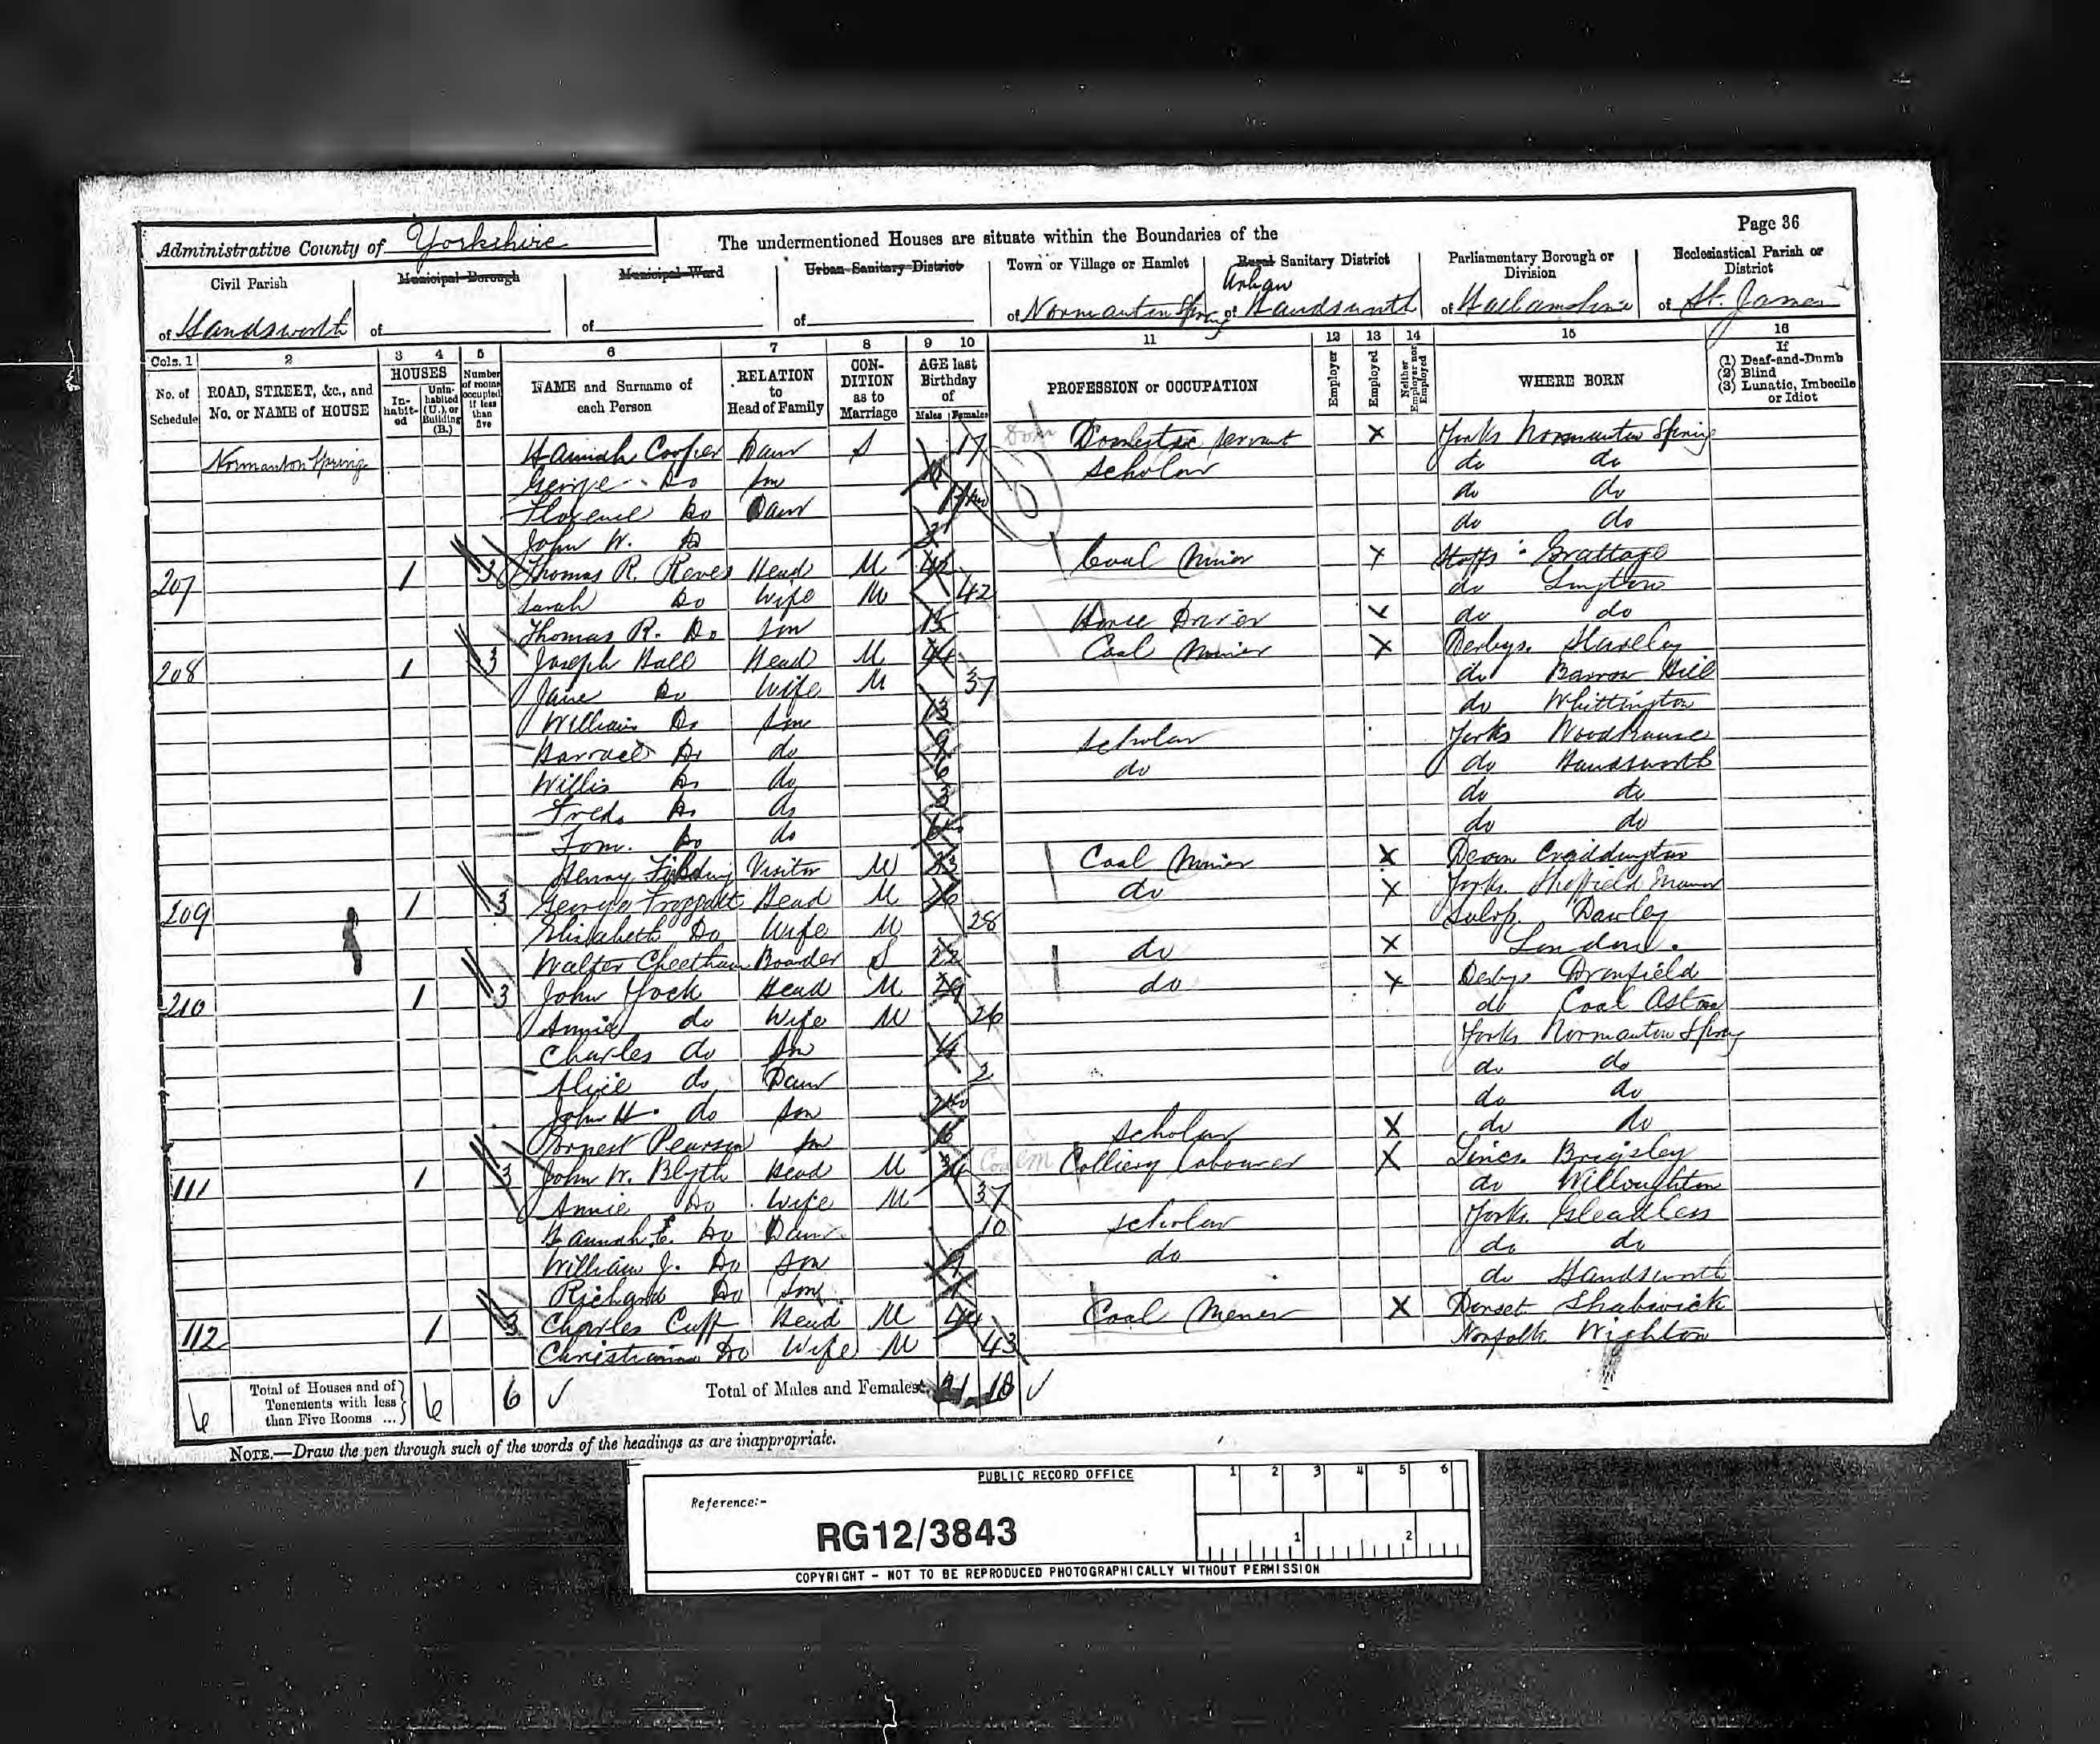 Page 36
Administrative County of Yorkshire
The undermentioned Houses are situate within the Boundaries of the
Civil Parish
of Handsworth
Municipal Borough
of
Municipal Ward
of
Urban Sanitary District
of
Town or Village or Hamlet
of Normanton Spring
Rural Sanitary District
Urban
of Handsworth
Parliamentary Borough or Division
of Hallamshire
Ecclesiastical Parish or District
of St. James
Cols. 1 2 3 4 5 6 7 8 9 10 11 12 13 14 15 16
No. of Schedule
ROAD, STREET, &c., and No. or NAME of HOUSE
HOUSES
In-habit-ed
Unin-habited (U.), or Building (B.)
Number of rooms occupied if less than five
NAME and Surname of each Person
RELATION to Head of Family
CON-DITION as to Marriage
AGE last Birthday of
Males Females
PROFESSION or OCCUPATION
Employer
Employed
Neither Employer nor Employed
WHERE BORN
If
(1) Deaf-and-Dumb
(2) Blind
(3) Lunatic, Imbecile or Idiot
Normanton Springs Hannah Cooper Daur S 17 Dom Domestic Servant X Yorks Normanton Spring
George Do Son scholar do do
Florence Do Daur do do
John W. Do do do
207 1 3 Thomas R. Reves Head M Coal Miner X Staffs
Sarah Do Wife M 42 do
Thomas R. Do Son 15 Horse Driver X do do
208 1 3 Joseph Hall Head M 44 Coal Miner X Derbys. Staveley
Jane Do Wife M 37 do Barrow Hill
William Do Son 13 do Whittington
Do do 9 scholar Yorks Woodhouse
Willis Do do 6 do do Handsworth
Fred. Do do 3 do do
Tom. Do do do do
Henry Visitor M 23 Coal Miner X Devon
209 1 3 George Froggatt Head M do X Yorks Sheffield Manor
Elizabeth Do Wife M 28 Salop. Dawley
Walter Cheetham Boarder S 22 do X London.
210 1 3 John York Head M 29 do X Derbys Dronfield
Annie do Wife M 26 do Coal Aston
Charles do Son 4 Yorks Normanton Spring
Alice do Daur 2 do do
John H. do Son do do
Ernest Pearson Son scholar X do do
111 1 3 John W. Blyth Head M 34 Coal M Colliery Labourer X Lincs. Brigsley
Annie Do Wife M 37 do Willoughton
Hannah E. Do Daur 10 scholar Yorks. Gleadless
William J. Do Son 9 do do do
Richard Do Son do Handsworth
112 1 3 Charles Cuff Head M 44 Coal Mener X Dorset Shabwick
Christianna Do Wife M 43 Norfolk Wighton
6 Total of Houses and of Tenements with less than Five Rooms ... 6 6 Total of Males and Females... 21 10
NOTE.—Draw the pen through such of the words of the headings as are inappropriate.
PUBLIC RECORD OFFICE
Reference:-
RG12/3843
1 2 3 4 5 6
1 2
COPYRIGHT - NOT TO BE REPRODUCED PHOTOGRAPHICALLY WITHOUT PERMISSION